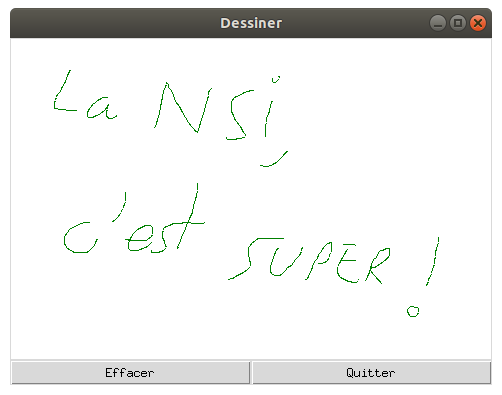 Dessiner
La NSi,
c'est SUPER!
Effacer Quitter